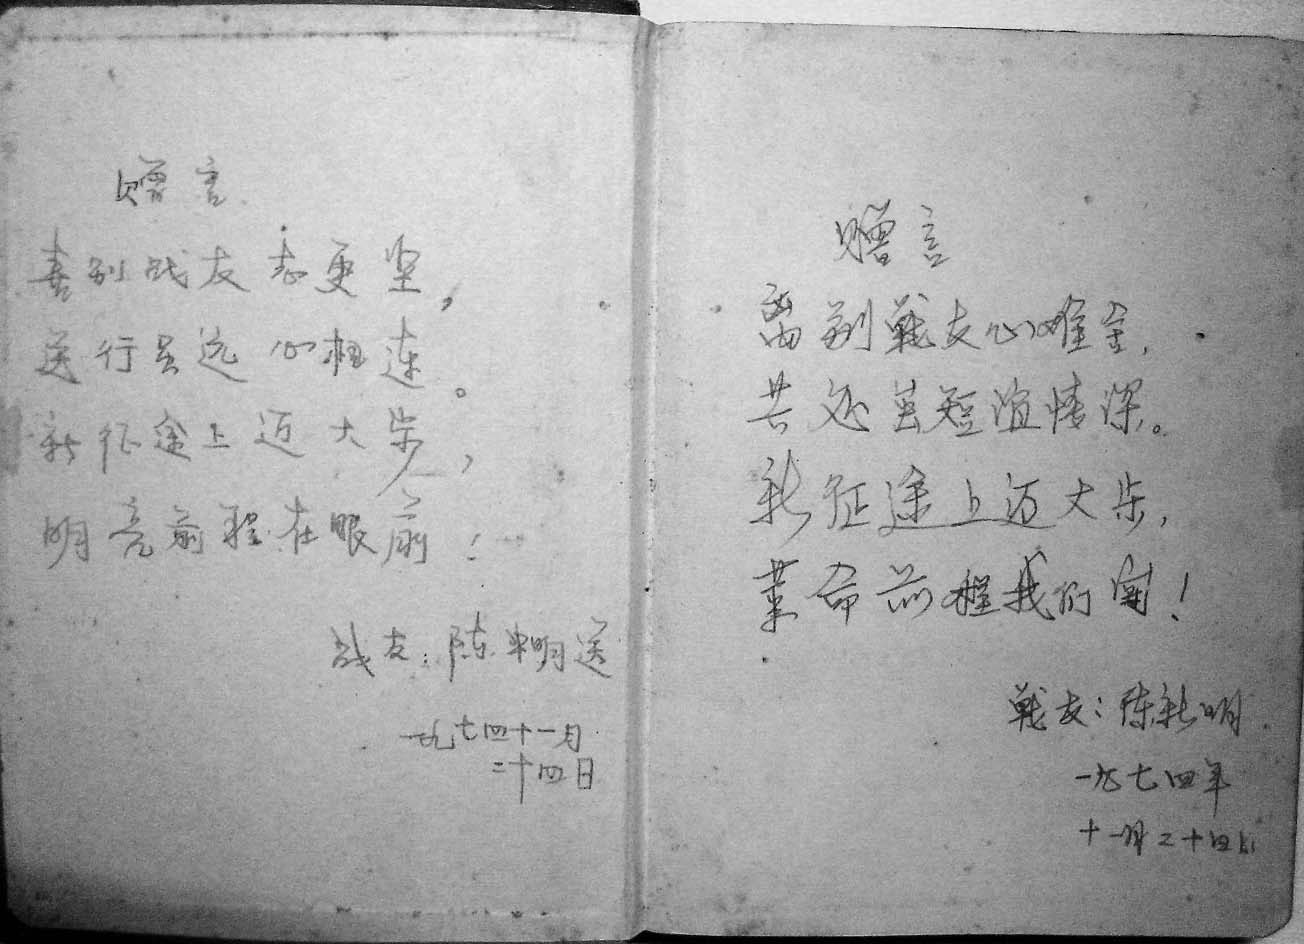 赠言
喜别战友志更坚，
送行虽远心相连。
新征途上迈大步，
明亮前程在眼前！
战友：陈明送
一九七四十一月
二十四日
赠言
离别战友心难舍，
共处虽短谊情深。
新征途上迈大步，
革命前程我们闯！
战友：陈新明
一九七四年
十一月二十四日